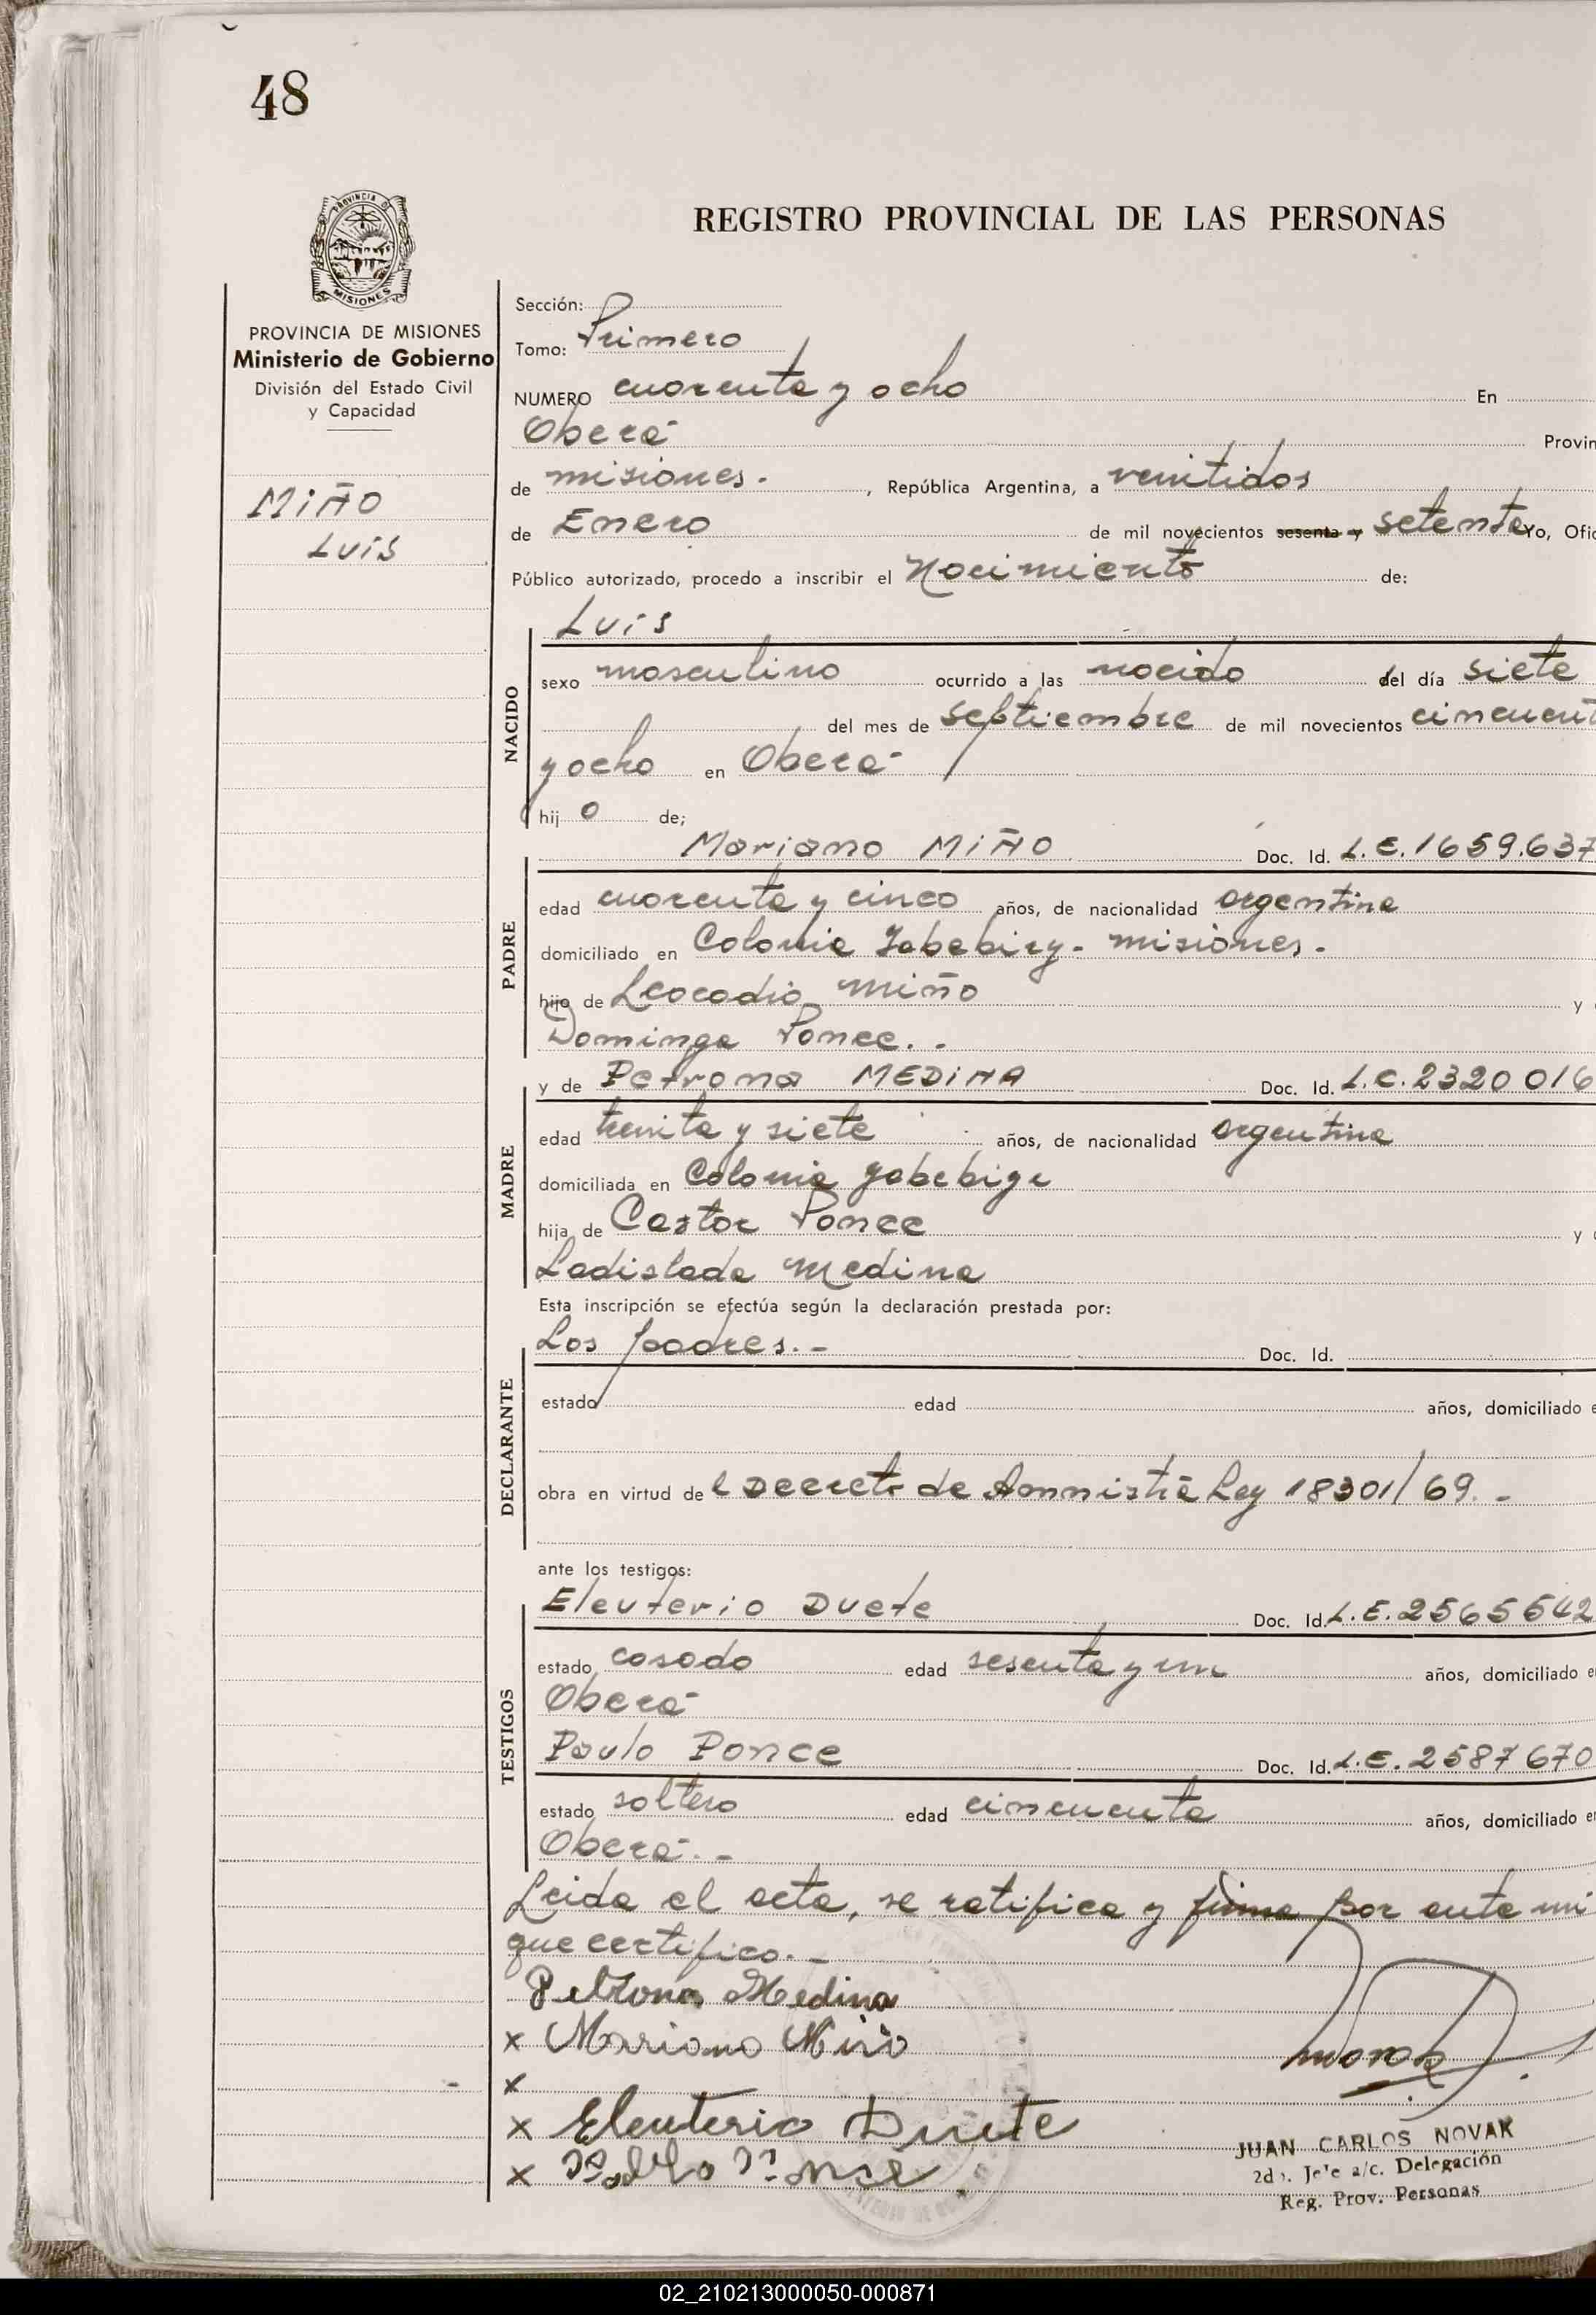 48
PROVINCIA DE
MISIONES
PROVINCIA DE MISIONES
Ministerio de Gobierno
División del Estado Civil
y Capacidad
MIÑO
LUIS
REGISTRO PROVINCIAL DE LAS PERSONAS
Sección:
Tomo: Primero
NUMERO cuarenta y ocho En
Oberá Provin
de misiones. , República Argentina, a veintidos
de Enero de mil novecientos sesenta y setenta Yo, Ofic
Público autorizado, procedo a inscribir el Nacimiento de:
NACIDO
Luis
sexo masculino ocurrido a las nacido del día siete
del mes de septiembre de mil novecientos cincuent
y ocho en Oberá
hijo de;
PADRE
Mariano MIÑO Doc. Id. L.E. 1659.637
edad cuarenta y cinco años, de nacionalidad argentina
domiciliado en Colonia Yabebiry - misiones.
hijo de Leocadio miño y
Dominga Ponce. -
MADRE
y de Petrona MEDINA Doc. Id. L.C. 2320016
edad treinta y siete años, de nacionalidad argentina
domiciliada en Colonia Yabebiry
hija de Castor Ponce y
Ladislada Medina
Esta inscripción se efectúa según la declaración prestada por:
DECLARANTE
Los padres. - Doc. Id.
estado edad años, domiciliado e
obra en virtud del Decreto de Amnistia Ley 18301/69. -
ante los testigos:
TESTIGOS
Eleuterio Duete Doc. Id. L.E. 2565542
estado casado edad sesenta y un años, domiciliado e
Oberá
Paulo Ponce Doc. Id. L.E. 2587670
estado soltero edad cincuenta años, domiciliado e
Oberá. -
Leida el acta, se ratifica y firma por ante mi
que certifico. -
Petrona Medina
x Mariano Miño
x
x Eleuterio Duete
x
JUAN CARLOS NOVAK
2do. Jefe a/c. Delegación
Reg. Prov. Personas
02_210213000050-000871